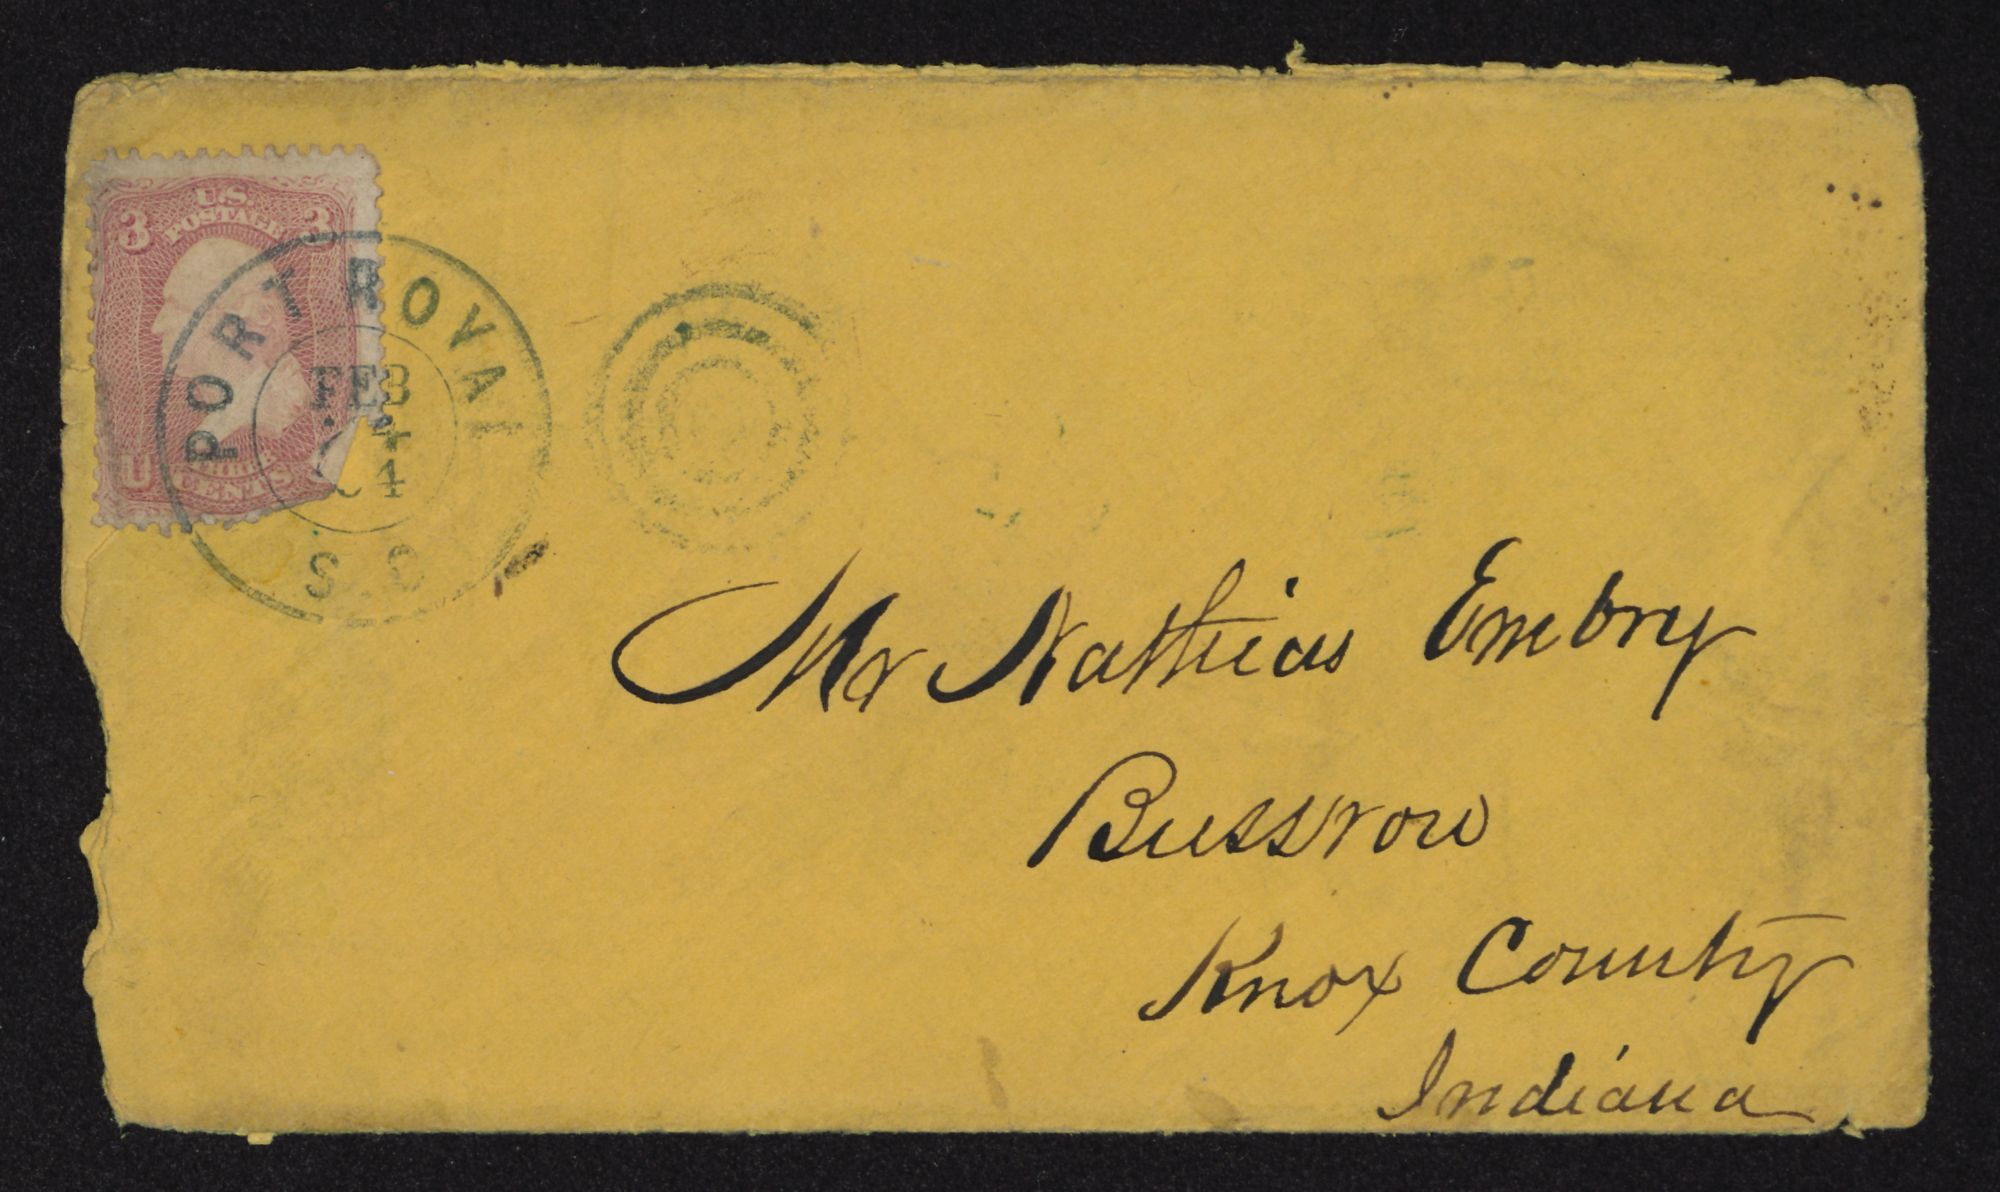 U.S.
POSTAGE
3 3
U
THREE
CENTS
PORT ROYAL
FEB
4
S.C
Mr Nathias Embry
Bussrow
Knox County
Indiana